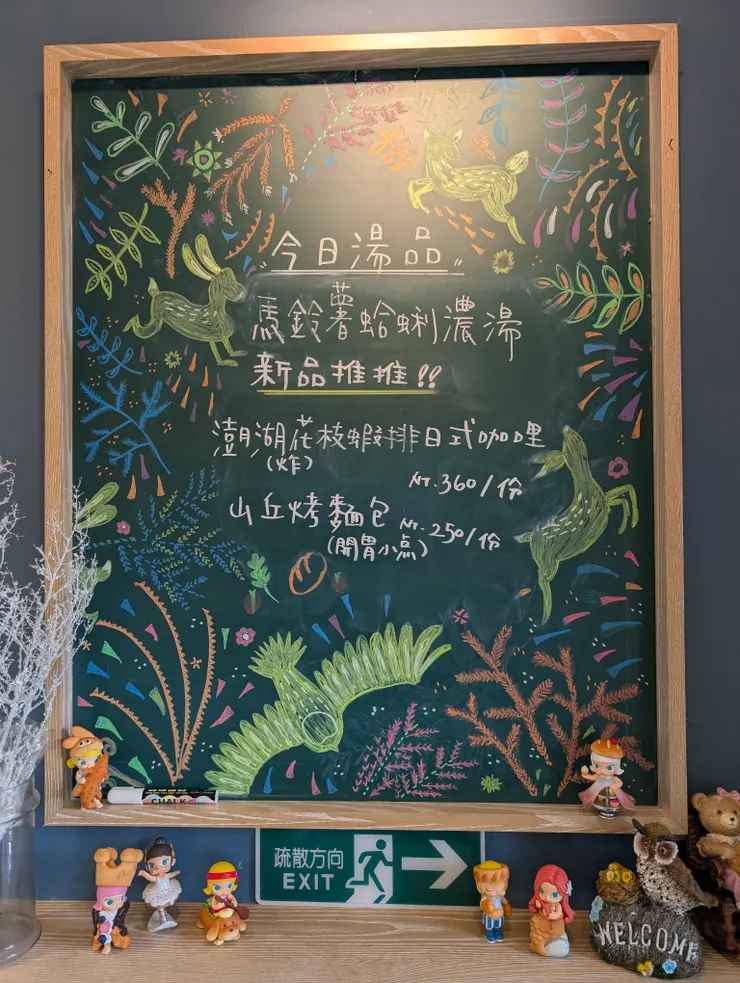 "今日湯品"
馬鈴薯蛤蜊濃湯
新品推推!!
澎湖花枝蝦排日式咖哩
(炸)
NT.360/份
山丘烤麵包 NT.250/份
(開胃小點)
CHALK
疏散方向
EXIT
WELCOME